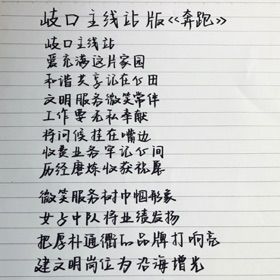 岐口主线站版《奔跑》
岐口主线站
爱充满这片家园
和谐共享记在心田
文明服务微笑常伴
工作要无私奉献
将问候挂在嘴边
收费业务牢记心间
历经磨炼收获祝愿
微笑服务树巾帼形象
女子中队将业绩发扬
把厚朴通衢的品牌打响亮
建文明岗位为沿海增光